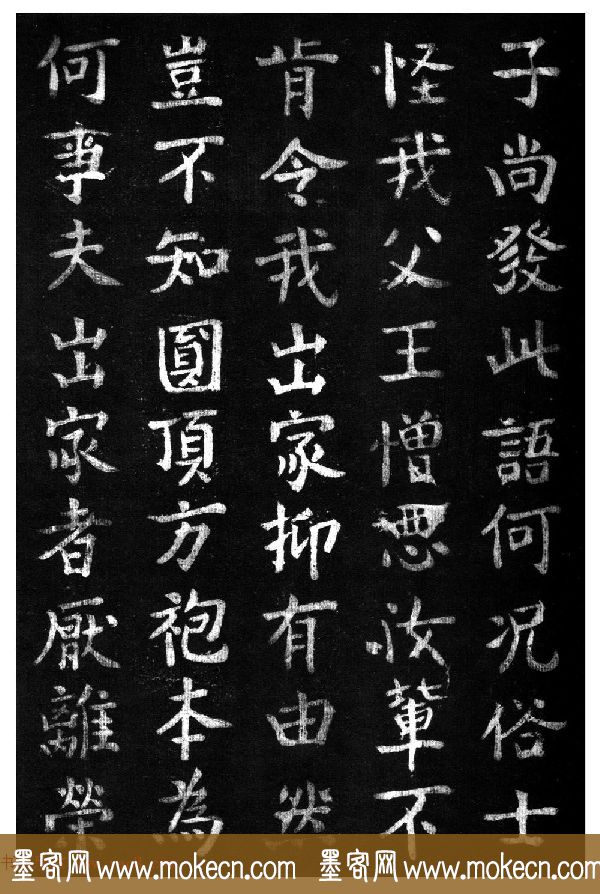 子尚發此語何况俗士
怪我父王憎惡汝輩不
肯令我出家抑有由然
豈不知圓頂方袍本為
何事夫出家者厭離榮
墨客网 www.mokecn.com 墨客网 www.mokecn.com